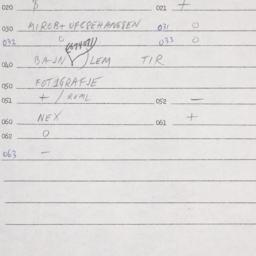 020 8 021 +
030 MIROB+ UPCBEHANGSEN 031 0
032 0 033 0
040 BAJN LEM TIR
050 FOTOGRAFJE
051 + / 052 —
060 NEX 061 +
062 0
063 —